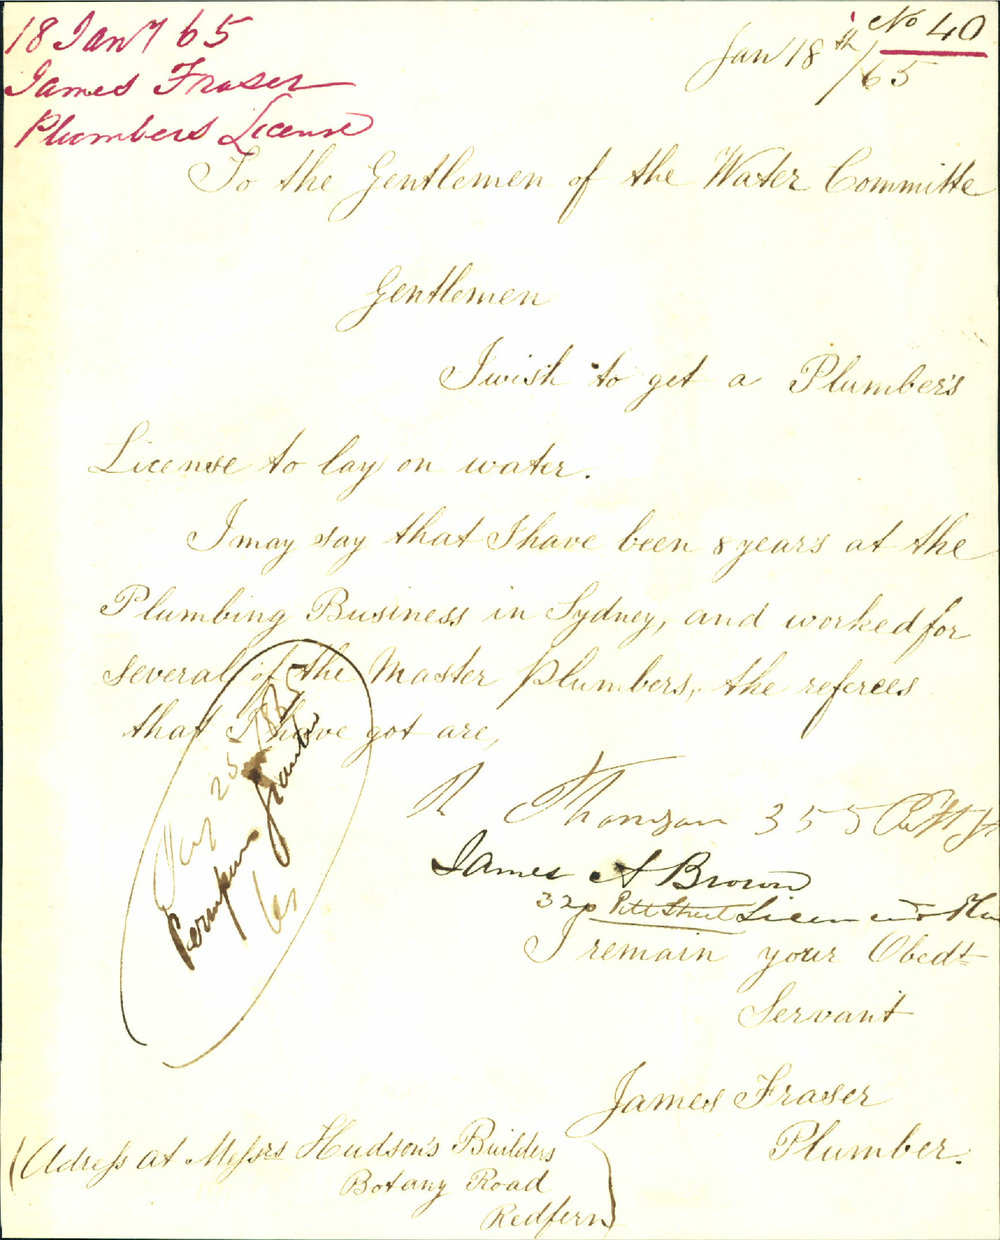 18 Jany 65
James Fraser
Plumbers License
No 40
Jan 18th/65
To the Gentlemen of the Water Committe
Gentlemen
I wish to get a Plumber's
License to lay on water.
I may say that I have been 8 years at the
Plumbing Business in Sydney, and worked for
several of the Master Plumbers, the referees
that I have got are,
R Thomson 355 Pitt St
James A Brown
320 Pitt Street Licensed
I remain your Obedt
Servant
James Fraser
Plumber.
(Adress at Messrs Hudson's Builders
Botany Road
Redfern)
25 1865